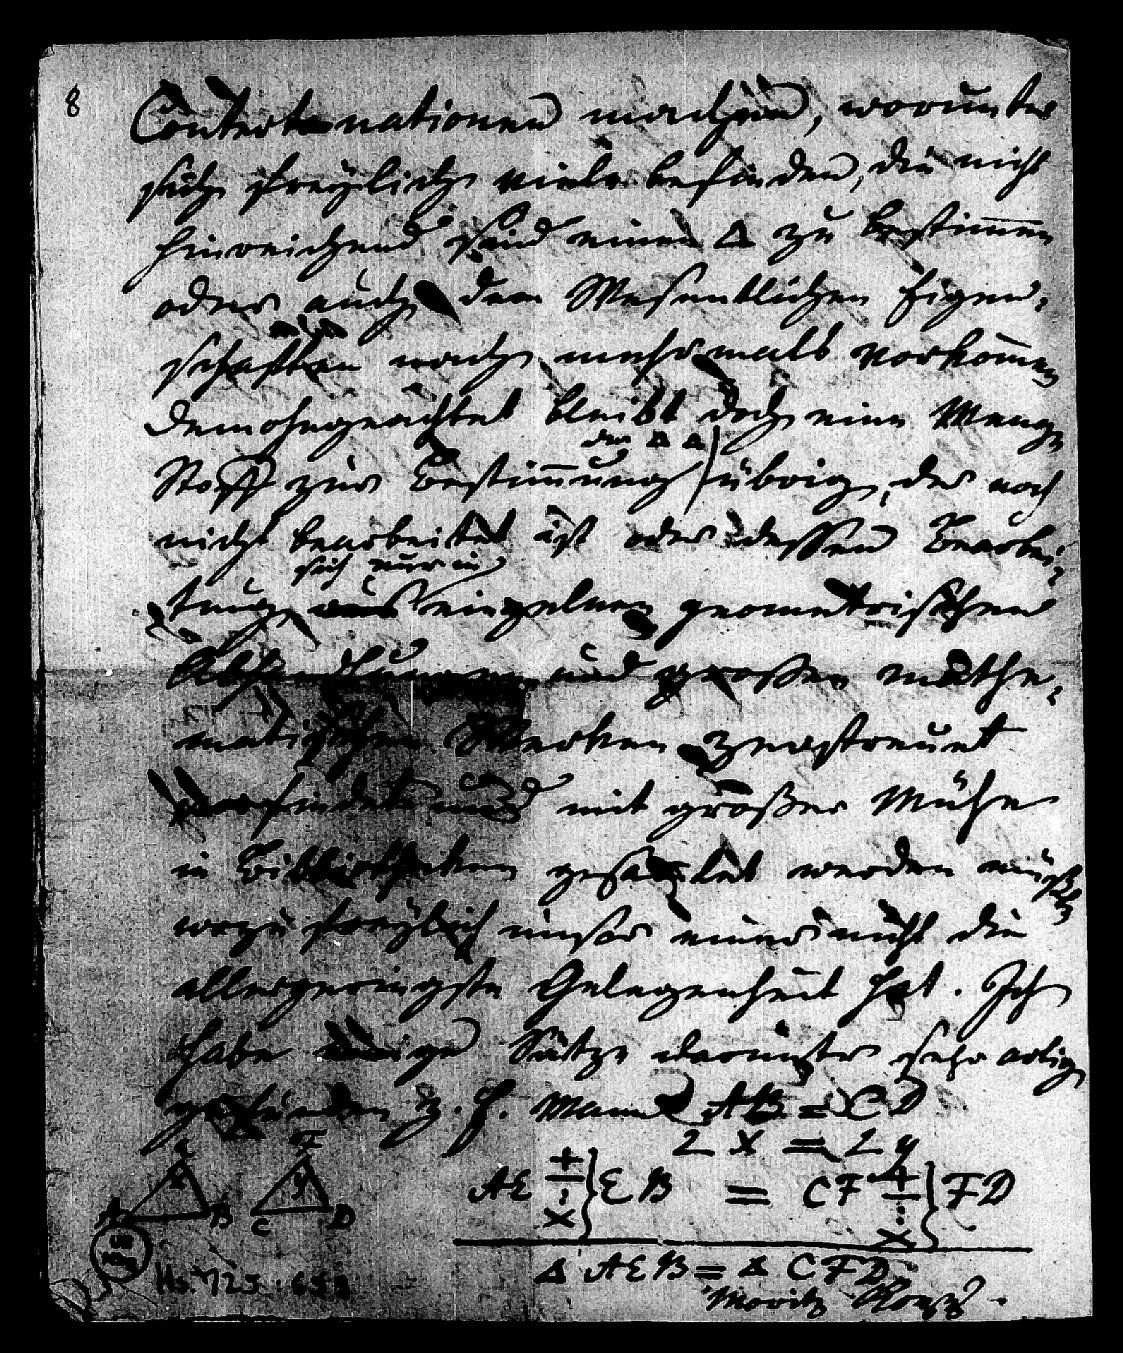 8
Conternationen machen, worunter
sich freylich viele befinden, die nicht
hinreichend sind einen Δ zu bestimmen
oder auch den Wesentlichen Eigen-
schaften nach mehrmals vorkommen
demohngeachtet bleibt doch eine Menge
der Δ Δ
Stoff zur Bestimmung übrig, der noch
nicht bearbeitet ist oder dessen Bearbei-
sich nur in
tung einzelnen geometrischen
Abhandlungen und großen mathe-
matischen Werken zerstreuet
vorfindet und mit großer Mühe
in Bibliotheken gesammelt werden müßte
wozu freylich unser einer nicht die
allergeringste Gelegenheit hat. Ich
habe einige Sätze darunter sehr artig
gefunden z. E. Wann AB = CD
∠ x = ∠ y
AE + ÷ : × } EB = CF + ÷ : × } FD
Δ AEB = Δ CFD
E F
x y
A B C D
Hs. 725 : 658
Moritz